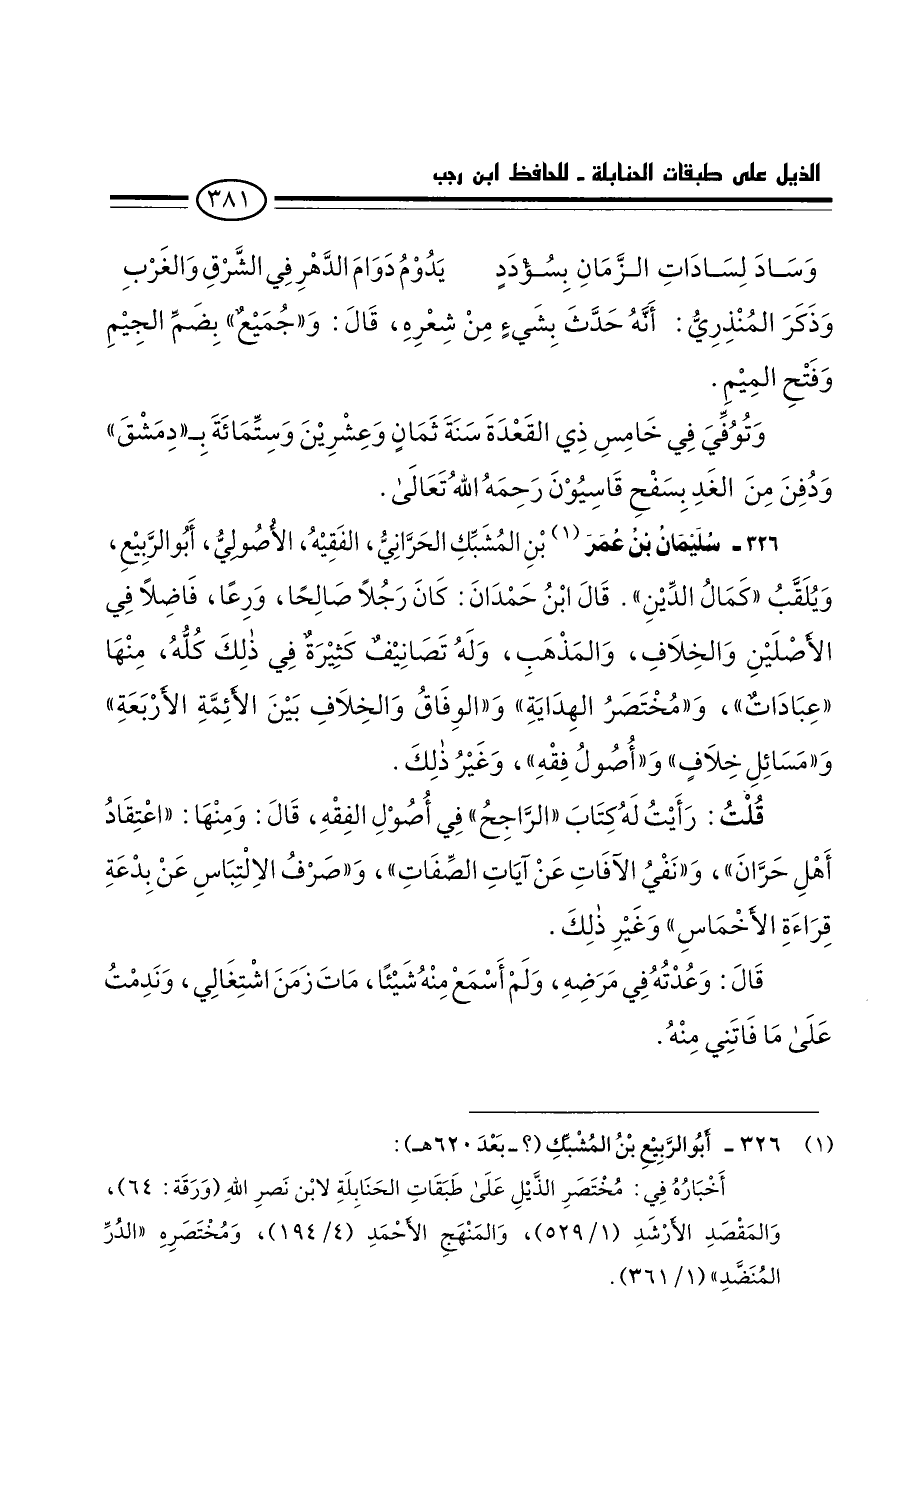 الذيل على طبقات الحنابلة ـ للحافظ ابن رجب
٣٨١
وَسَـادَ لِسَـادَاتِ الـزَّمَانِ بِسُـؤْدَدٍ يَدُوْمُ دَوَامَ الدَّهْرِ فِي الشَّرْقِ وَالغَرْبِ
وَذَكَرَ المُنْذِرِيُّ: أَنَّهُ حَدَّثَ بِشَيءٍ مِنْ شِعْرِهِ، قَالَ: وَ«جُمَيْعٌ» بِضَمِّ الجِيْمِ
وَفَتْحِ المِيْمِ.
وَتُوُفِّيَ فِي خَامِسِ ذِي القَعْدَةِ سَنَةَ ثَمَانٍ وَعِشْرِيْنَ وَسِتِّمَائَةَ بِـ«دِمَشْقَ»
وَدُفِنَ مِنَ الغَدِ بِسَفْحِ قَاسِيُوْنَ رَحِمَهُ اللهُ تَعَالَىٰ.
٣٢٦ ـ سُلَيْمَانُ بْنُ عُمَرَ (١) بْنِ المُشَبِّكِ الحَرَّانِيُّ، الفَقِيْهُ، الأُصُولِيُّ، أَبُو الرَّبِيْعِ،
وَيُلَقَّبُ «كَمَالُ الدِّيْنِ». قَالَ ابْنُ حَمْدَانَ: كَانَ رَجُلاً صَالِحًا، وَرِعًا، فَاضِلاً فِي
الأَصْلَيْنِ وَالخِلَافِ، وَالمَذْهَبِ، وَلَهُ تَصَانِيْفٌ كَثِيْرَةٌ فِي ذٰلِكَ كُلُّهُ، مِنْهَا
«عِبَادَاتٌ»، وَ«مُخْتَصَرُ الهِدَايَةِ» وَ«الوِفَاقُ وَالخِلَافِ بَيْنَ الأَئِمَّةِ الأَرْبَعَةِ»
وَ«مَسَائِلِ خِلَافٍ» وَ«أُصُولُ فِقْهِ»، وَغَيْرُ ذٰلِكَ.
قُلْتُ: رَأَيْتُ لَهُ كِتَابَ «الرَّاجِحُ» فِي أُصُوْلِ الفِقْهِ، قَالَ: وَمِنْهَا: «اعْتِقَادُ
أَهْلِ حَرَّانَ»، وَ«نَفْيُ الآفَاتِ عَنْ آيَاتِ الصِّفَاتِ»، وَ«صَرْفُ الِالْتِبَاسِ عَنْ بِدْعَةِ
قِرَاءَةِ الأَخْمَاسِ» وَغَيْرِ ذٰلِكَ.
قَالَ: وَعُدْتُهُ فِي مَرَضِهِ، وَلَمْ أَسْمَعْ مِنْهُ شَيْئًا، مَاتَ زَمَنَ اشْتِغَالِي، وَنَدِمْتُ
عَلَىٰ مَا فَاتَنِي مِنْهُ.
(١) ٣٢٦ ـ أَبُو الرَّبِيْعِ بْنُ المُشَبِّكِ (؟ ـ بَعْدَ ٦٢٠هـ):
أَخْبَارُهُ فِي: مُخْتَصَرِ الذَّيْلِ عَلَىٰ طَبَقَاتِ الحَنَابِلَةِ لابْنِ نَصرِ اللهِ (وَرَقَة: ٦٤)،
وَالمَقْصَدِ الأَرْشَدِ (١/ ٥٢٩)، وَالمَنْهَجِ الأَحْمَدِ (٤/ ١٩٤)، وَمُخْتَصَرِهِ «الدُّرِّ
المُنَضَّدِ» (١/ ٣٦١).